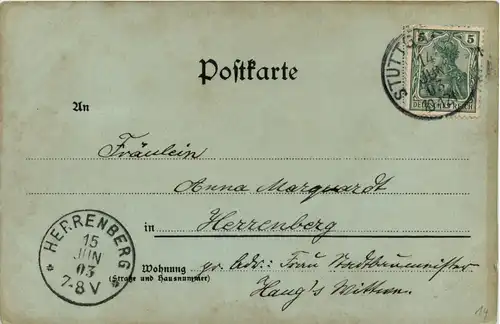 Postkarte
STUTTG
14
JUN
03
5 5
DEUTSCHES REICH
An
Fräulein
Anna Marquardt
in Herrenberg
HERRENBERG
15
JUN
03
7-8 V
Wohnung
(Straße und Hausnummer)
pr. Adr: Frau Stadtbaumeister
Haug's Witwe.
14